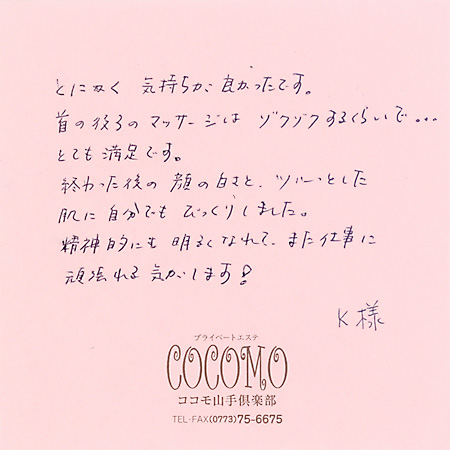 とにかく 気持ちが 良かったです。
首の後ろの マッサージは ゾクゾクするくらいで...
とても 満足です。
終わった後の 顔の白さと、ツルーっとした
肌に 自分でも びっくりしました。
精神的にも 明るくなれて、また仕事に
頑張れる 気がします!
K様
プライベートエステ
COCOMO
ココモ山手倶楽部
TEL・FAX(0773)75-6675